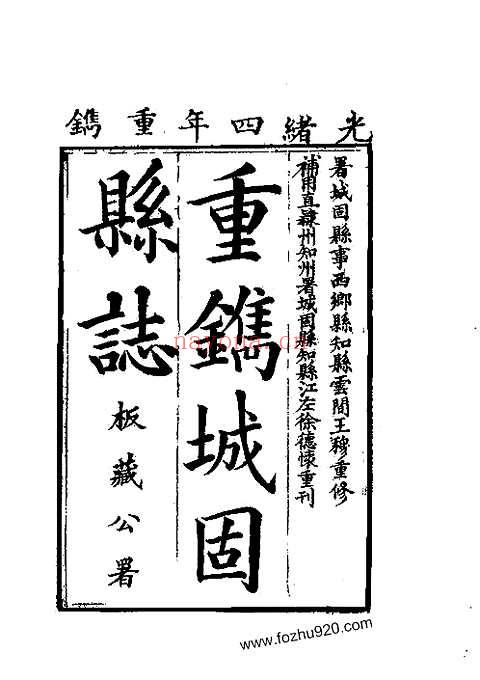 光緒四年重鐫
署城固縣事西鄉縣知縣雲間王穆重修
補用直隸州知州署城固縣知縣江左徐德懷重刊
重鐫城固
縣誌
板藏公署
www.fozhu920.com